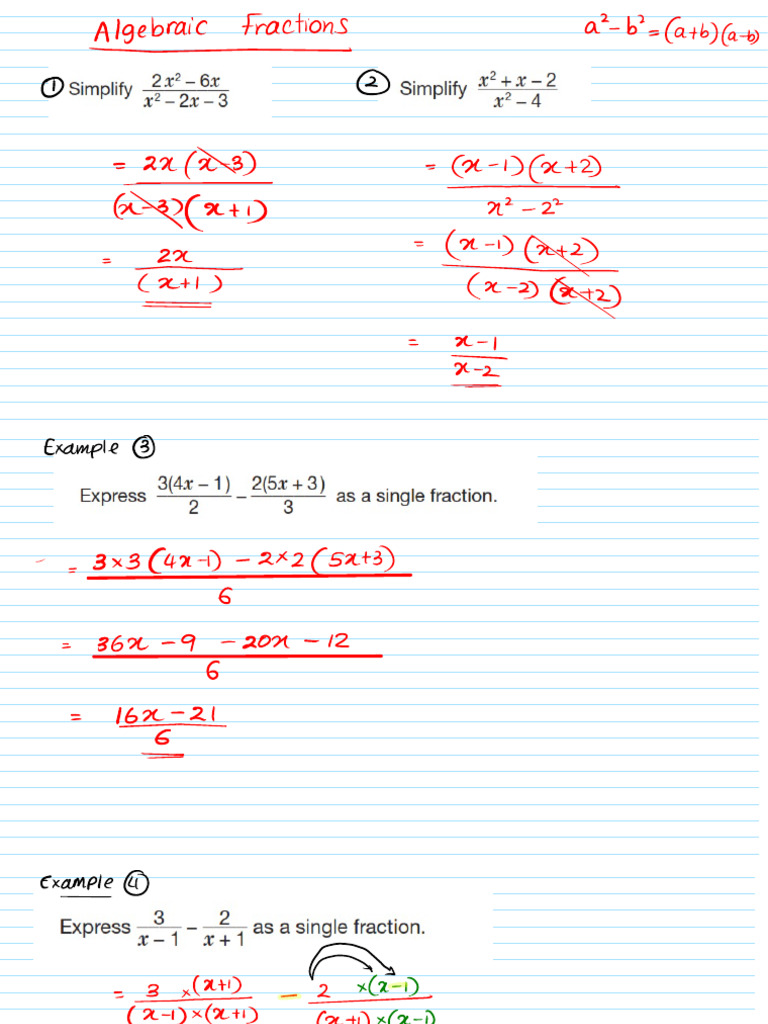 Algebraic Fractions
a² – b² = (a+b)(a–b)
① Simplify (2x² – 6x)/(x² – 2x – 3)
= 2x(x–3)/(x–3)(x+1)
= 2x/(x+1)
② Simplify (x² + x – 2)/(x² – 4)
= (x–1)(x+2)/(x² – 2²)
= (x–1)(x+2)/(x–2)(x+2)
= (x–1)/(x–2)
Example ③
Express 3(4x – 1)/2 – 2(5x + 3)/3 as a single fraction.
= (3×3(4x–1) – 2×2(5x+3))/6
= (36x – 9 – 20x – 12)/6
= (16x – 21)/6
Example ④
Express 3/(x – 1) – 2/(x + 1) as a single fraction.
= 3 ×(x+1)/(x–1)×(x+1) – 2 ×(x–1)/(x+1)×(x–1)